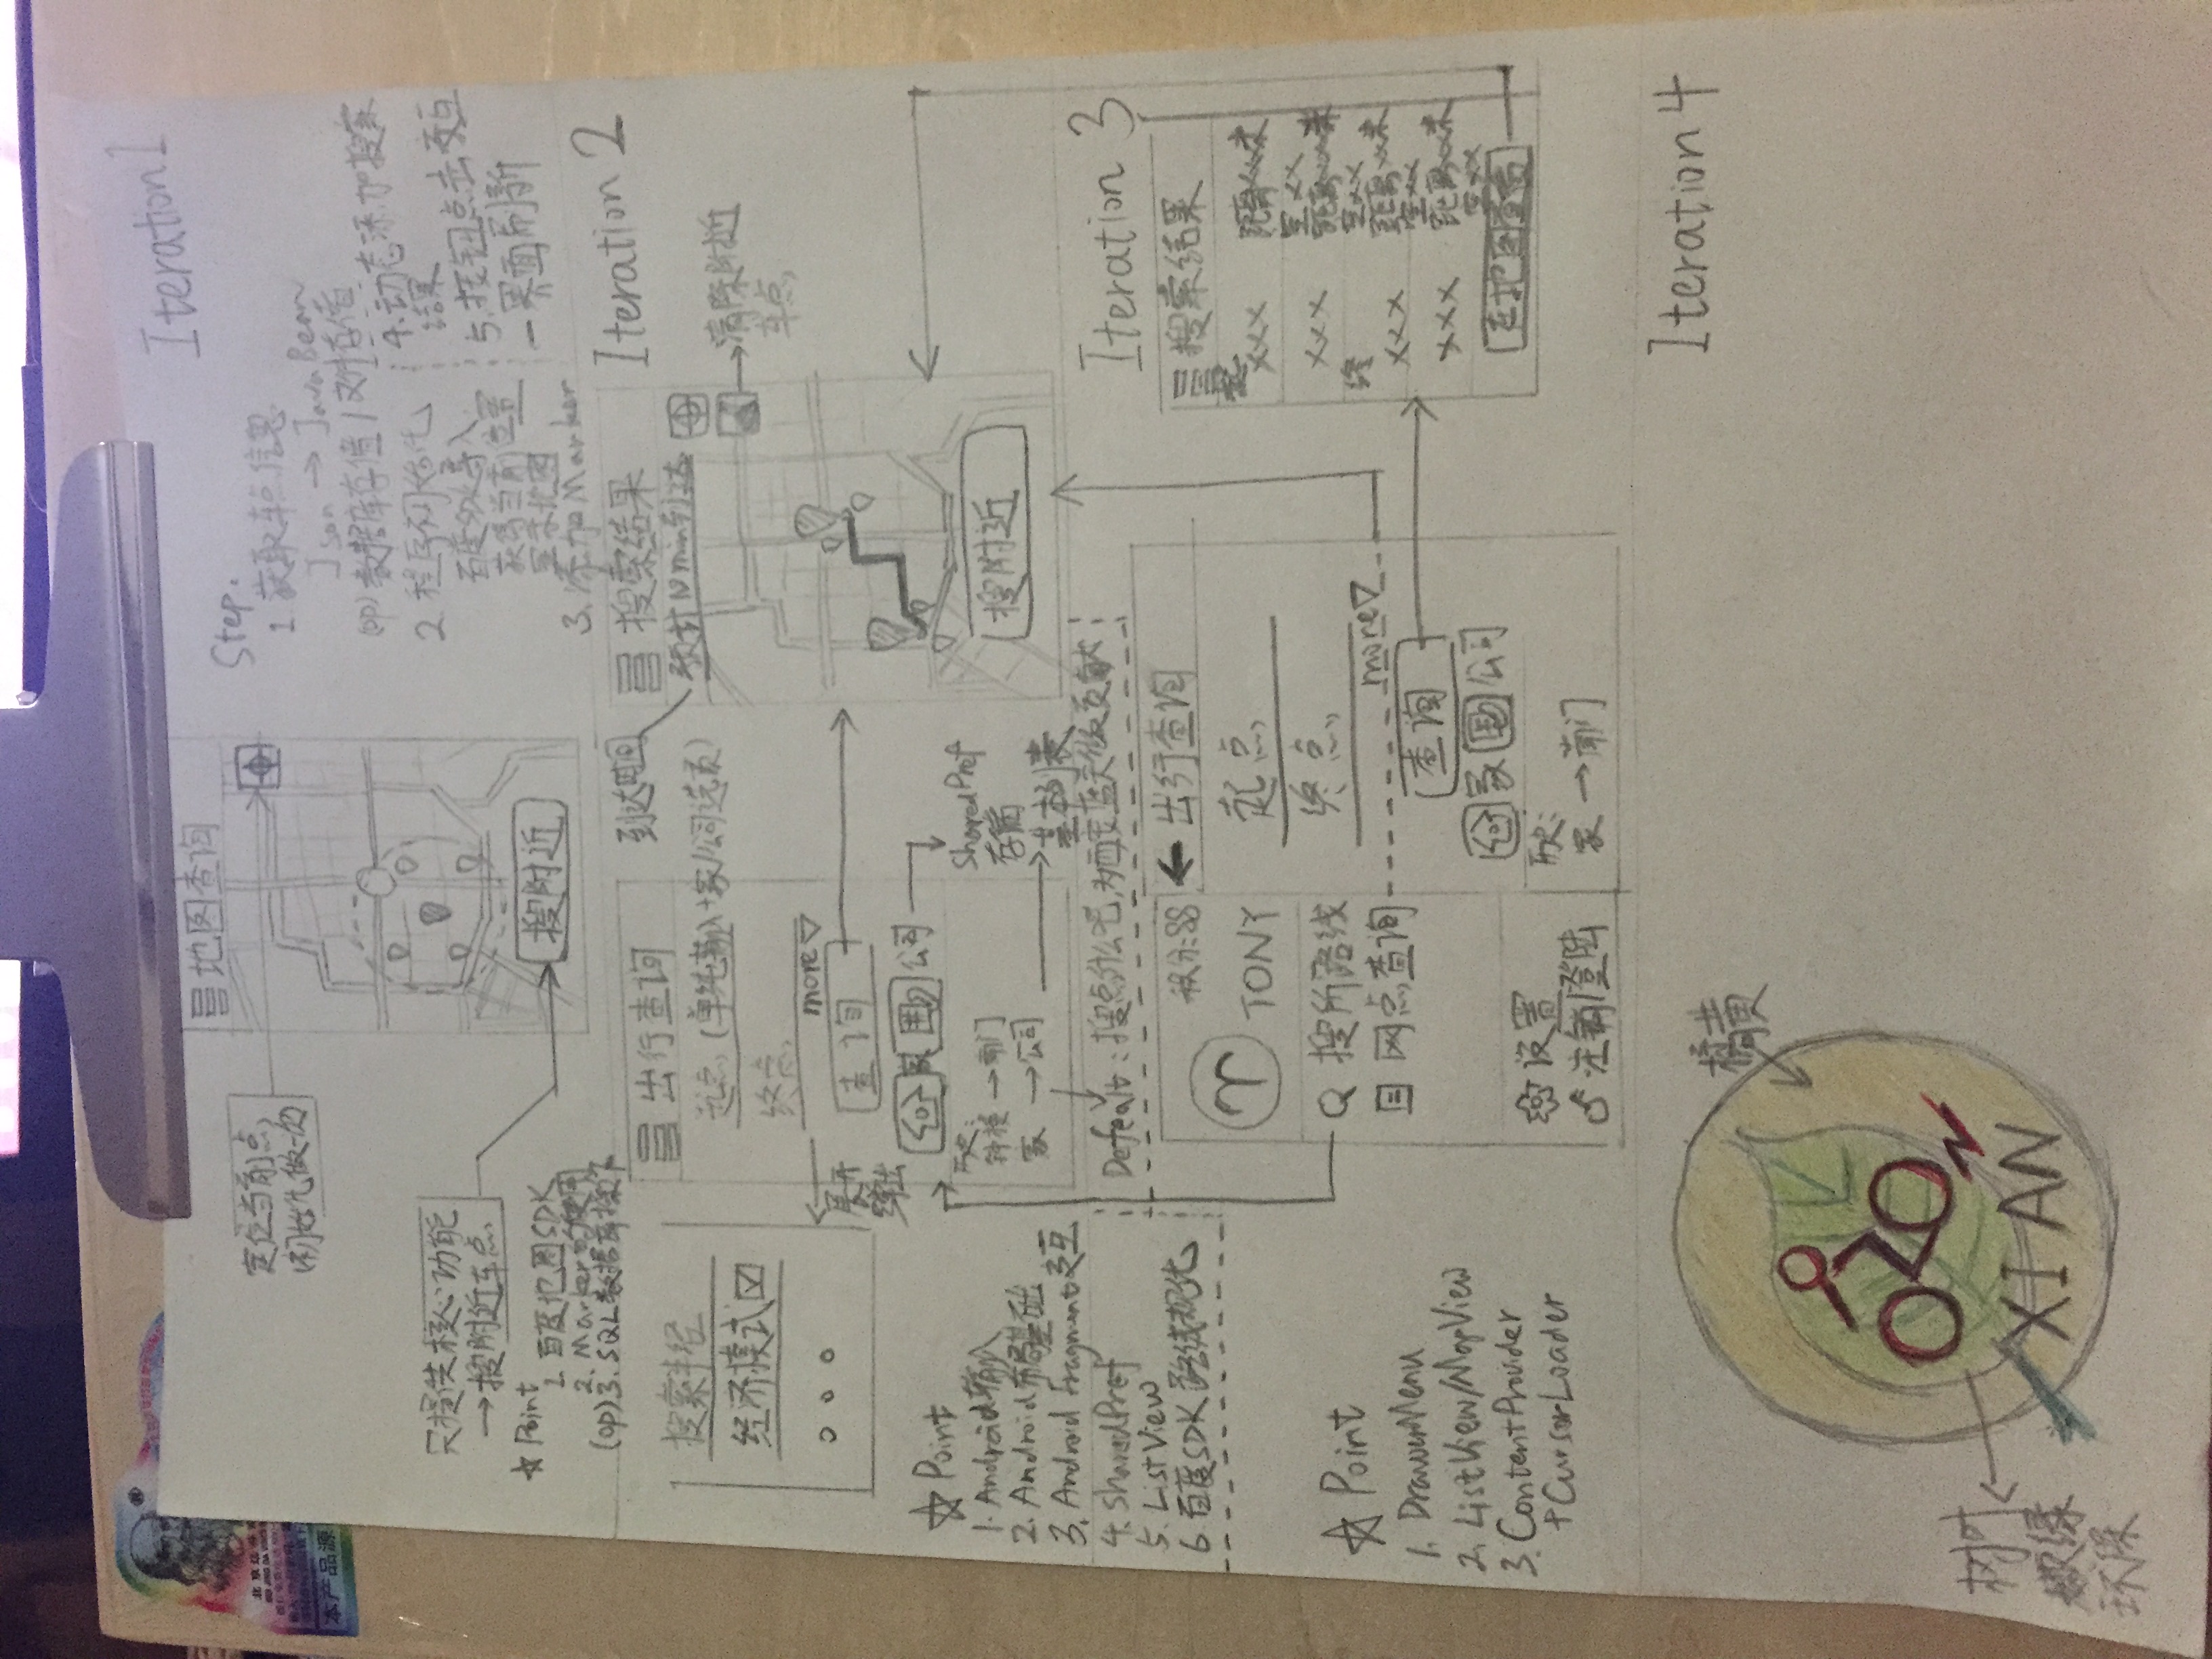 本产品源
Iteration 1
地图查询
定位当前点
(初始化做一次)
只提供核心功能
→搜附近车点
☆ Point
1. 百度地图SDK
2. Marker的使用
(op) 3. SQL数据库操作
搜附近
Step.
1 获取车点信息
Json → JavaBean
(op) 数据库存储 / 文件存储
2. 程序初始化
百度SDK导入
获得当前位置
显示地图
3. 添加Marker
4. 动态添加搜索
结果
5. 按钮点击交互
一界面刷新
Iteration 2
搜索半径
经济模式
展开
弹出
出行查询
起点 (单纯输入+家/公司选项)
终点
more▽
查询
家 公司
历史:
钟楼 → 南门
家 → 公司
SharedPref
存储
基本列表
Defealt: 搜点什么吧,为西安蓝天做贡献
到达时间
搜索结果
预计10min到达
清除附近
车点
搜附近
☆ Point
1. Android输入
2. Android布局基础
3. Android Fragment交互
4. SharedPref
5. ListView
6. 百度SDK 路线规化
Iteration 3
积分:88
TONY
搜所路线
网点查询
设置
注销/登陆
← 出行查询
起点
终点
more▽
查询
家 公司
历史:
家 → 南门
搜索结果
起
××× 距离××米
空××
××× 距离××米
空××
终
××× 距离××米
空××
××× 距离××米
空××
在地图查看
☆ Point
1. DrawerMenu
2. ListView/MapView
3. ContentProvider
+CursorLoader
Iteration 4
橘黄
XI AN
树叶
嫩绿
环保